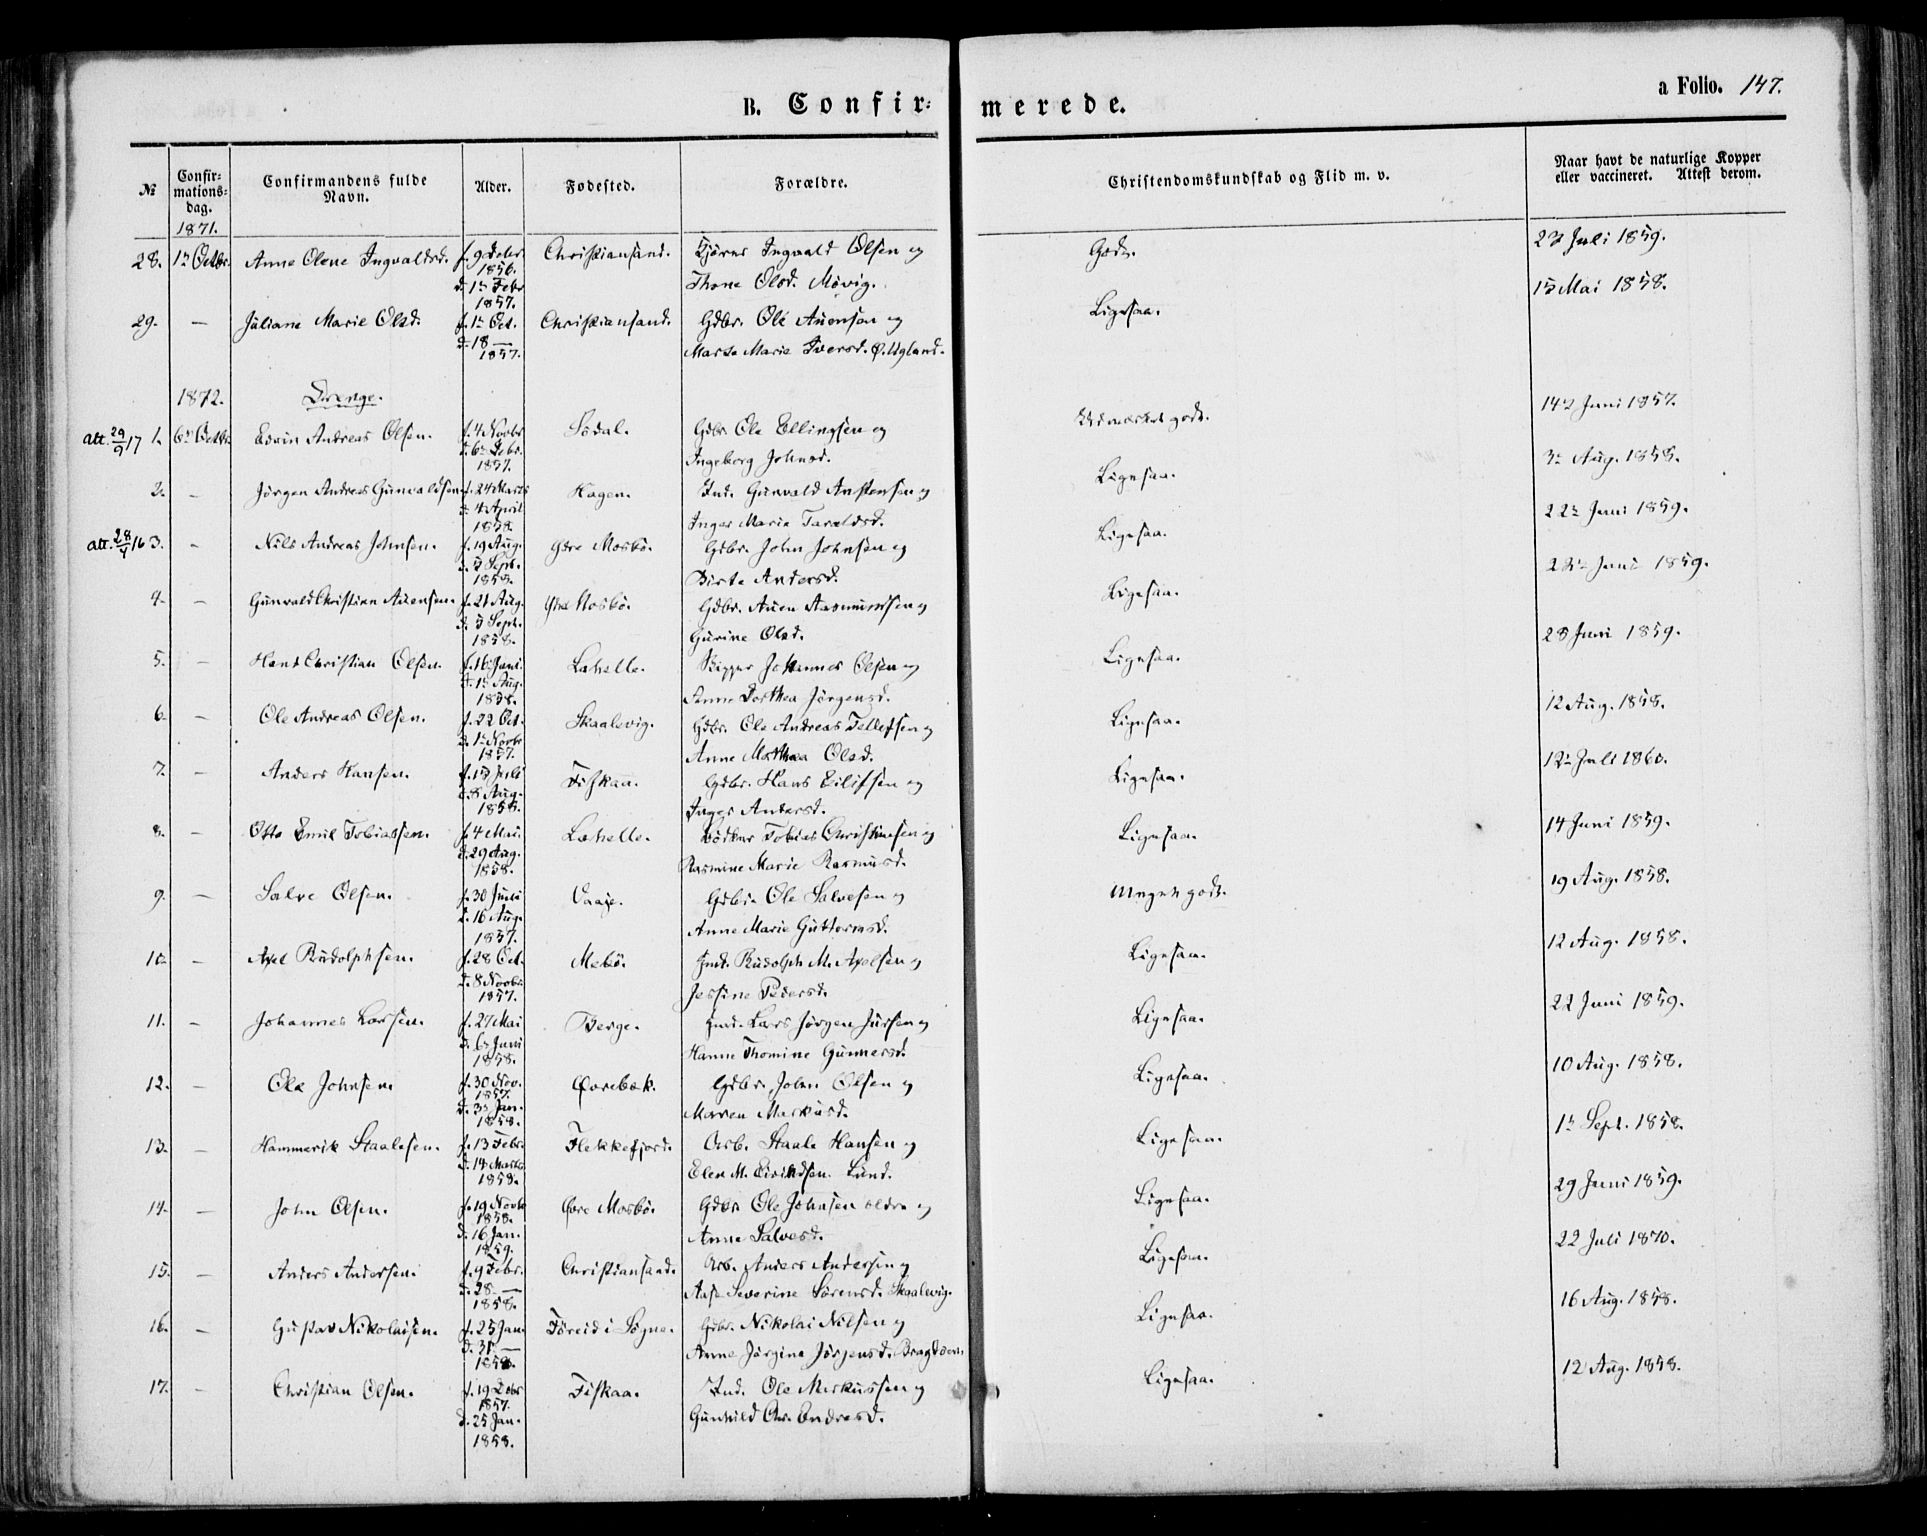 a Folio. 147.
B. Confir- merede.
№ Confir-mations-dag. Confirmandens fulde Navn. Alder. Fødested. Forældre. Christendomskundskab og Flid m. v. Naar havt de naturlige Kopper eller vaccineret. Attest derom.
1871.
28. 1ste Octbr. Anne Olene Ingvaldsd. f. 9 Debr. Christiansand. Bjørns Ingvald Olsen og Godt. 23 Juli 1859.
1856.
d. 1ste Febr. Thone Olsd. Møvig.
1857.
29. — Juliane Marie Olsd. f. 1ste Oct. Christiansand. Gdbr. Ole Auensen og Ligesaa. 15 Mai 1858.
d. 18 — Marte Marie Iversd. Ø. Uglend.
1857.
1872. Drenge.
Att. 29/9 17 1. 6te Octbr. Edvin Andreas Olsen. f. 4 Novbr. Sødal. Gdbr. Ole Ellingsen og Udmærket godt. 14de Juni 1857.
d. 6te Debr. Ingeborg Johnsd.
1857.
2. — Jørgen Andreas Gunvaldsen. f. 24 Marts Hagen. Ind. Gunvald Anstensen og Ligesaa. 3die Aug. 1858.
d. 4 April Inger Marie Taraldsd.
1858.
Att. 28/4 16 3. — Nils Andreas Johnsen. f. 19 Aug. Ydre Mosbø. Gdbr. John Johnsen og Ligesaa. 22de Juni 1859.
d. 5 Sept. Birte Andersd.
1858.
4. — Gunvald Christian Auensen. f. 21 Aug. Ydre Mosbø. Gdbr. Auen Aasmundsen og Ligesaa. 22de Juni 1859.
d. 5 Sept. Gurine Olsd.
1858.
5. — Hans Christian Olsen. f. 16 Juni Lahelle. Skipper Johannes Olsen og Ligesaa. 28 Juni 1859.
d. 1ste Aug. Anne Dorthea Jørgensd.
1858.
6. — Ole Andreas Olsen. f. 22 Oct. Skaalevig. Gdbr. Ole Andreas Tellefsen og Ligesaa. 12 Aug. 1858.
d. 1ste Novbr. Anne Marthea Olsd.
1857.
7. — Anders Hansen. f. 15 Juli Fiskaa. Gdbr. Hans Eilifsen og Ligesaa. 12te Juli 1860.
d. 8 Aug. Inger Andersd.
1858.
8. — Otto Emil Tobiassen. f. 4 Mai. Lahelle. Bødker Tobias Christensen og Ligesaa. 14 Juni 1859.
d. 29 Aug. Rasmine Marie Rasmusd.
1858.
9. — Salve Olsen. f. 30 Juni Vaaje. Gdbr. Ole Salvesen og Meget godt. 19 Aug. 1858.
d. 16 Aug. Anne Marie Guttormsd.
1857.
10. — Axel Rudolphsen. f. 28 Oct. Mebø. Ind. Rudolph M. Axelsen og Ligesaa. 12 Aug. 1858.
d. 8 Novbr. Jessine Pedersd.
1857.
11. — Johannes Larsen. f. 27 Mai Berge. Ind. Lars Jørgen Jursen og Ligesaa. 22 Juni 1859.
d. 6te Juni Hanne Thomine Gunnersd.
1858.
12. — Ole Johnsen. f. 30 Nov. Øvrebæk. Gdbr. John Olsen og Ligesaa. 10 Aug. 1858.
1857.
d. 3die Jan. Maren Markusd.
1858.
13. — Hammerik Staalesen. f. 13 Febr. Flekkefjord. Arb. Staale Hansen og Ligesaa. 1ste Sept. 1858.
d. 14 Marts Elen M. Eiriksen. Lund.
1858.
14. — John Olsen. f. 19 Novbr. Øvre Mosbø. Gdbr. Ole Johnsen ældre og Ligesaa. 29 Juni 1859.
1858.
d. 16 Jan. Anne Salvesd.
1859.
15. — Anders Andersen. f. 9 Febr. Christiansand. Arb. Anders Andersen og Ligesaa. 22 Juli 1870.
d. 28 — Aase Severine Sørensd. Skaalevig.
1858.
16. — Gustav Nikolaisen. f. 25 Jan. Føreid i Søgne. Gdbr. Nikolai Nilsen og Ligesaa. 16 Aug. 1858.
d. 31 — Anne Jørgine Jørgensd. Bragdøen.
1858.
17. — Christian Olsen. f. 19 Debr. Fiskaa. Ind. Ole Markussen og Ligesaa. 12 Aug. 1858.
1857.
d. 25 Jan. Gunhild Chr. Endresd.
1858.